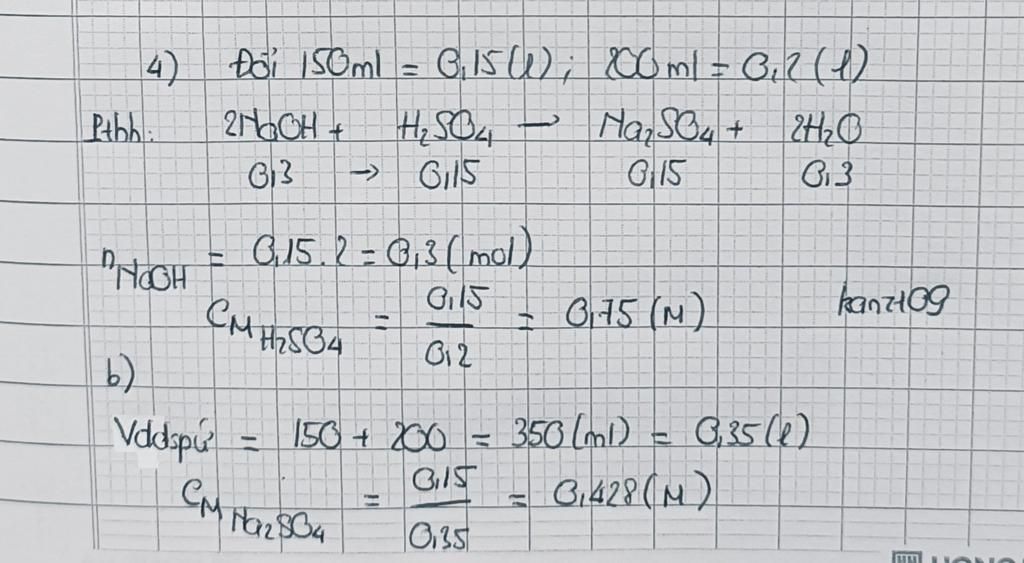 4) Đổi 150ml = 0,15(l); 200ml = 0,2(l)
Pthh: 2NaOH + H₂SO₄ → Na₂SO₄ + 2H₂O
0,3 → 0,15 0,15 0,3
nNaOH = 0,15.2 = 0,3(mol)
CM H₂SO₄ = 0,15/0,2 = 0,75(M)
kanzt09
b)
Vddspứ = 150 + 200 = 350(ml) = 0,35(l)
CM Na₂SO₄ = 0,15/0,35 = 0,428(M)